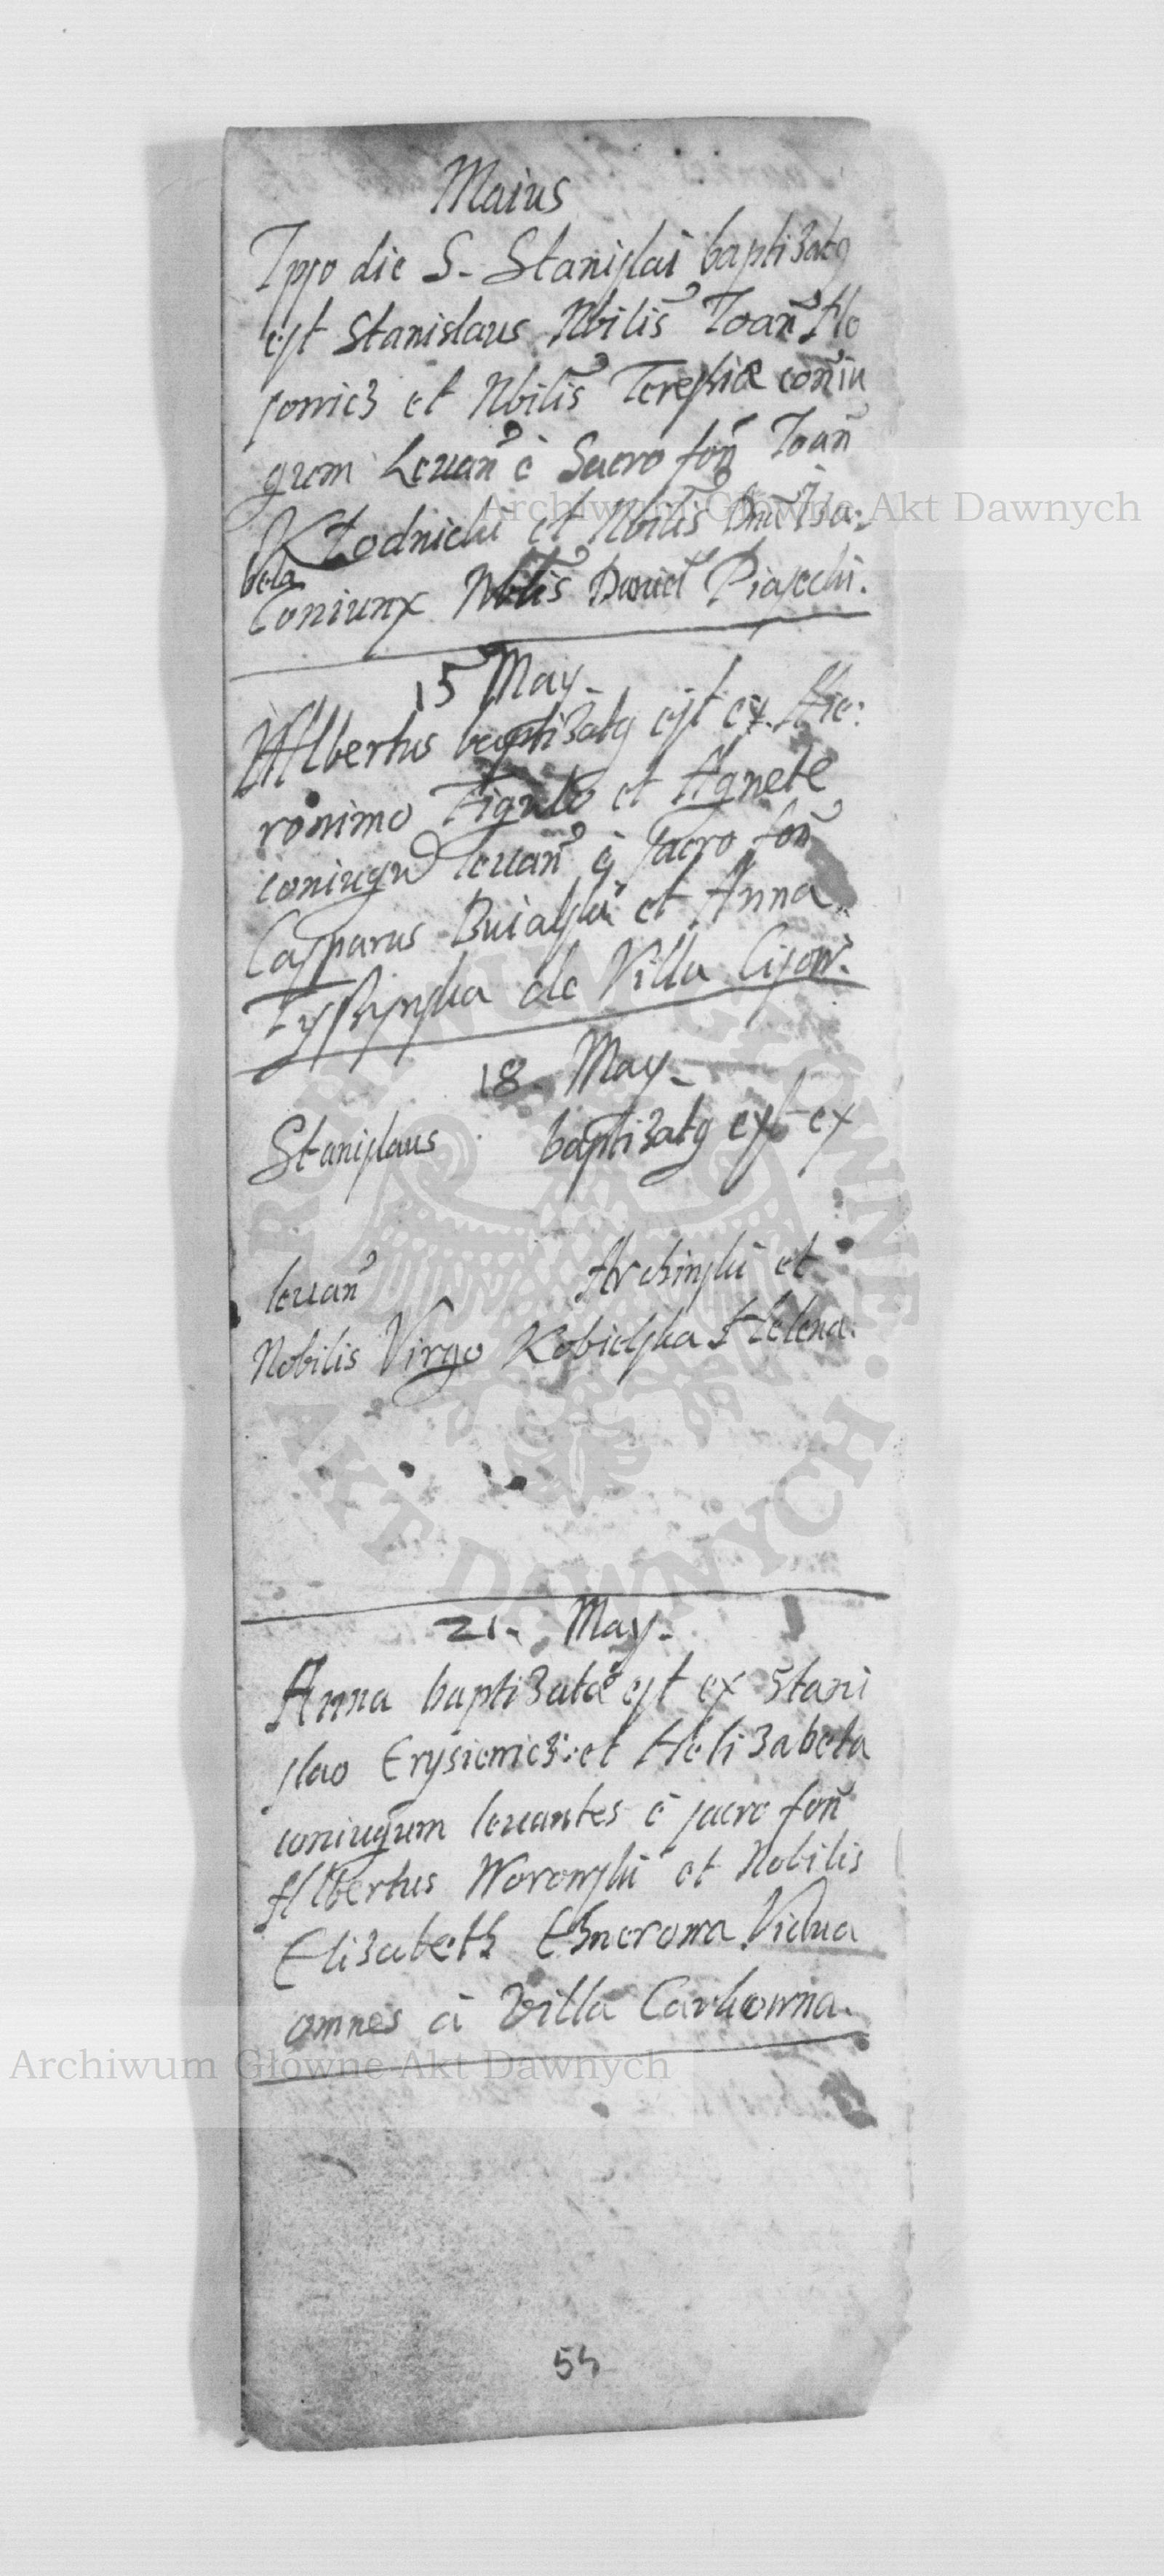 Maius
Ipso die S. Stanislai baptizatq
est Stanislaus Nbilis Joan̄ Ho
sowicz et Nbilis Teresiæ coniu
gum Leuan̄ è Sacro fon̄ Joan̄
Kłodnicki et Nbilis Dn̄a Isa:
bela
Coniunx Nbilis Daniel Piasecki.
15 May.
Albertus baptizatq est ex Hie:
ronimo Figulo et Agnete
coniugū leuan̄ è sacro fon̄
Casparus Buialski et Anna
de Villa Cisow.
18. May.
Stanislaus baptizatq est ex
leuan̄ Archinski et
Nobilis Virgo Kobielska Helena.
21. May.
Anna baptizata est ex Stani
slao Erysiewicz et Helizabeta
coniugum leuantes è sacro fon̄
Albertus Woronski et Nobilis
Elizabeth Vidua
omnes à Villa Carkowna.
54
Archiwum Główne Akt Dawnych
ARCHIWUM GŁÓWNE AKT DAWNYCH
Archiwum Główne Akt Dawnych